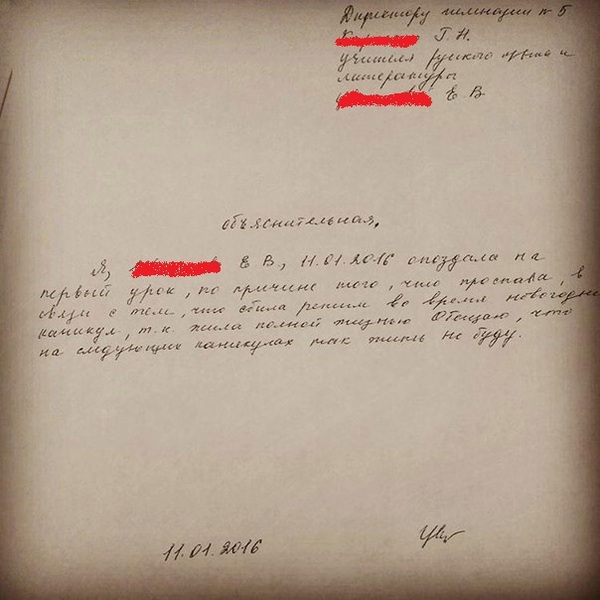 Директору гимназии № 5
Г. Н.
учителя русского языка и
литературы
Е В
объяснительная.
Я, Е В, 11.01.2016 опоздала на
первый урок, по причине того, что проспала, в
связи с тем, что сбила режим во время новогодни
каникул, т.к. жила полной жизнью Обещаю, что
на следующих каникулах так жить не буду.
11.01.2016